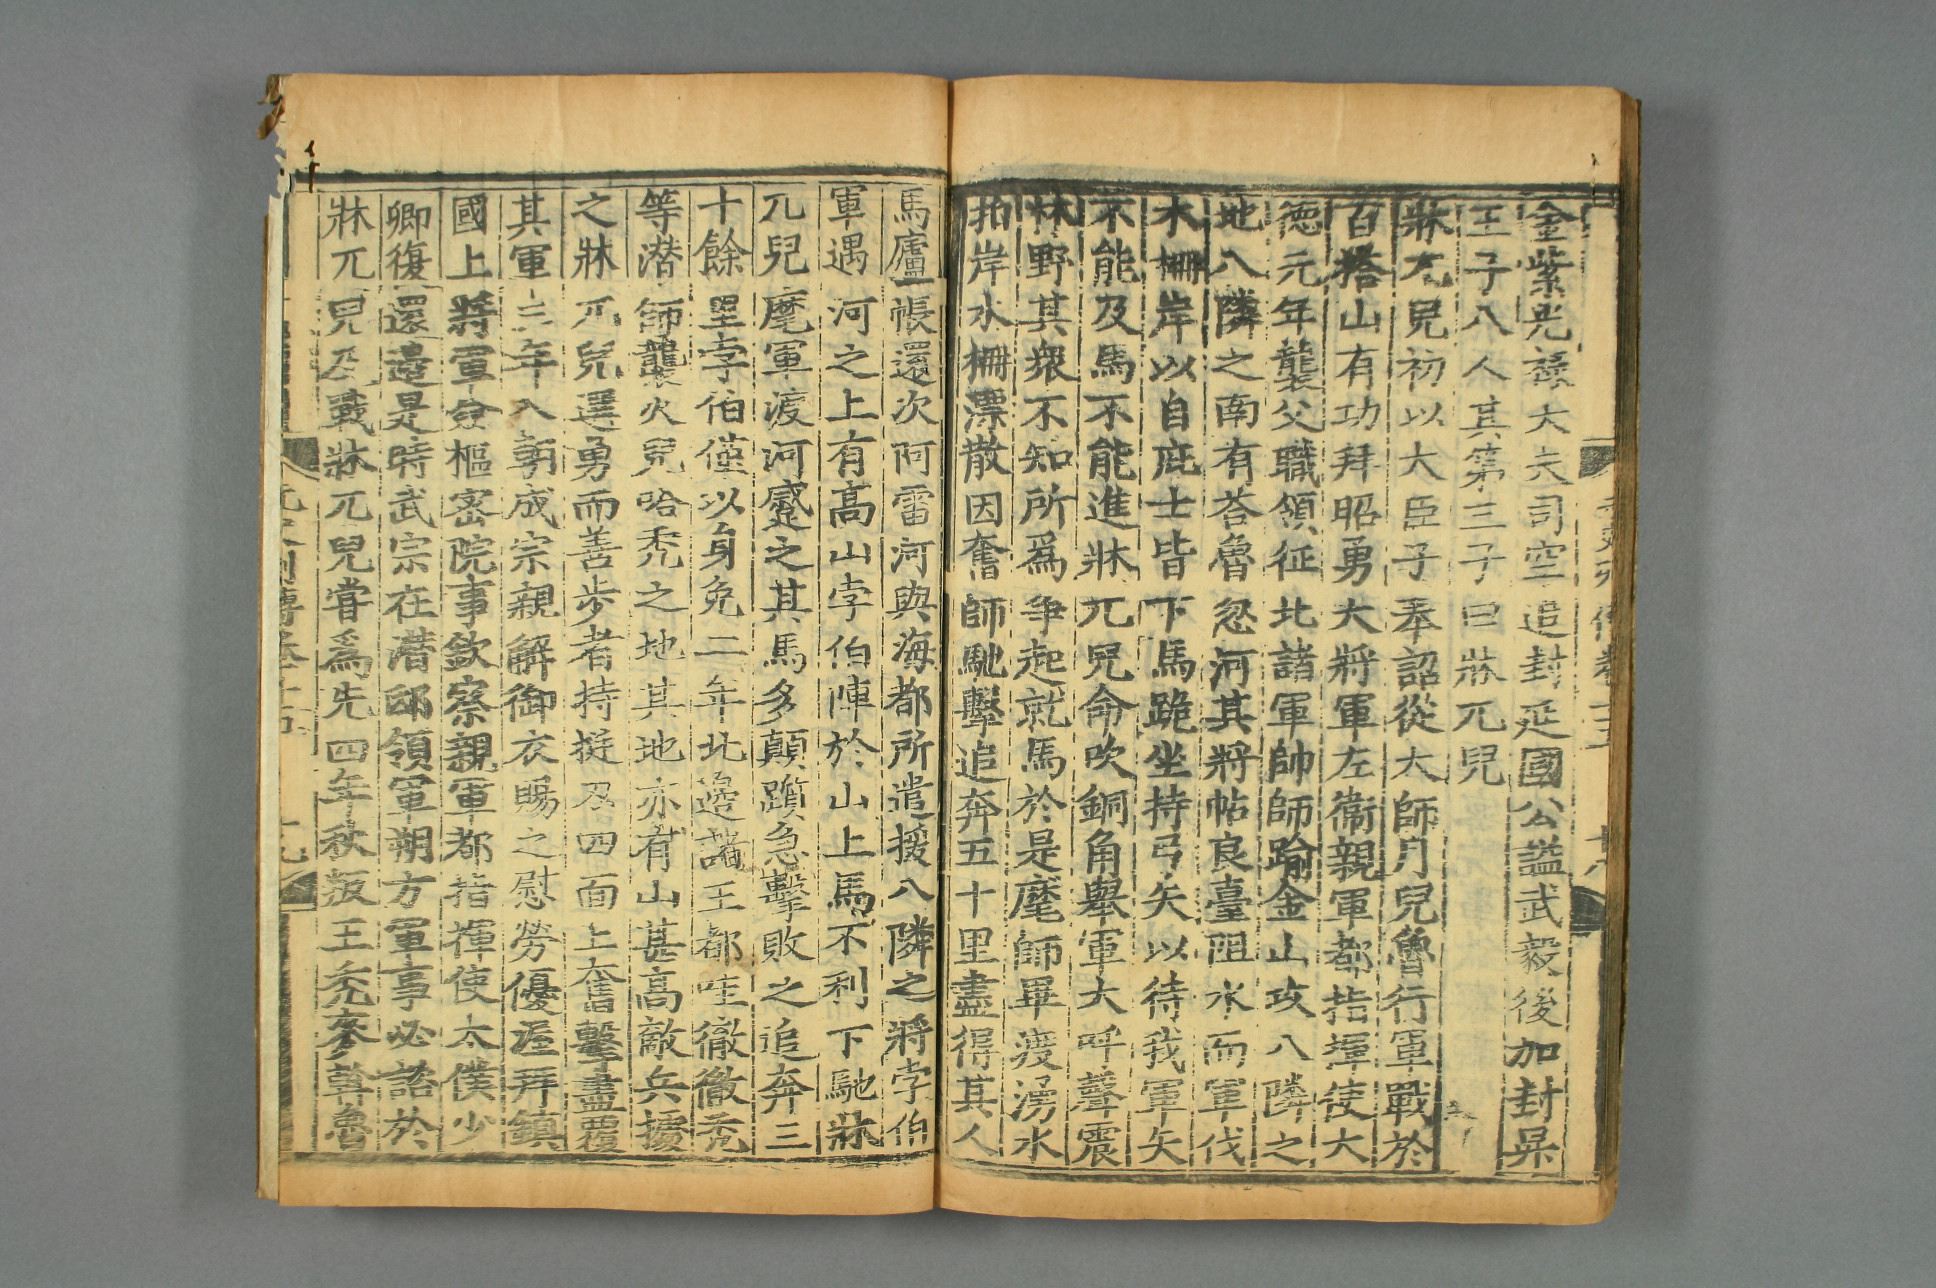 金紫光祿大夫司空追封延國公諡武毅後加封昇
王子八人其第三子曰牀兀兒
牀兀兒初以大臣子奉詔從太師月兒魯行軍戰於
百搭山有功拜昭勇大將軍左衞親軍都指揮使大
德元年襲父職領征北諸軍帥師踰金山攻八隣之
地八隣之南有荅魯忽河其將帖良臺阻水而軍伐
木柵岸以自庇士皆下馬跪坐持弓矢以待我軍矢
不能及馬不能進牀兀兒命吹銅角舉軍大呼聲震
林野其衆不知所爲争起就馬於是麾師畢渡湧水
拍岸水柵漂散因奮師馳擊追奔五十里盡得其人
馬廬帳還次阿雷河與海都所遣援八隣之將孛伯
軍遇河之上有高山孛伯陣於山上馬不利下馳牀
兀兒麾軍渡河蹙之其馬多顛躓急擊敗之追奔三
十餘里孛伯僅以身免二年北邊諸王都哇徹徹禿
等潛師襲火兒哈禿之地其地亦有山甚高敵兵據
之牀兀兒選勇而善步者持挺刃四面上奮擊盡覆
其軍三年入朝成宗親解御衣賜之慰勞優渥拜鎮
國上將軍僉樞密院事欽察親軍都指揮使太僕少
卿復還邊是時武宗在潛邸領軍朔方軍事必諮於
牀兀兒及戰牀兀兒嘗爲先四年秋叛王禿麥斡魯
元史列傳卷十五 十九